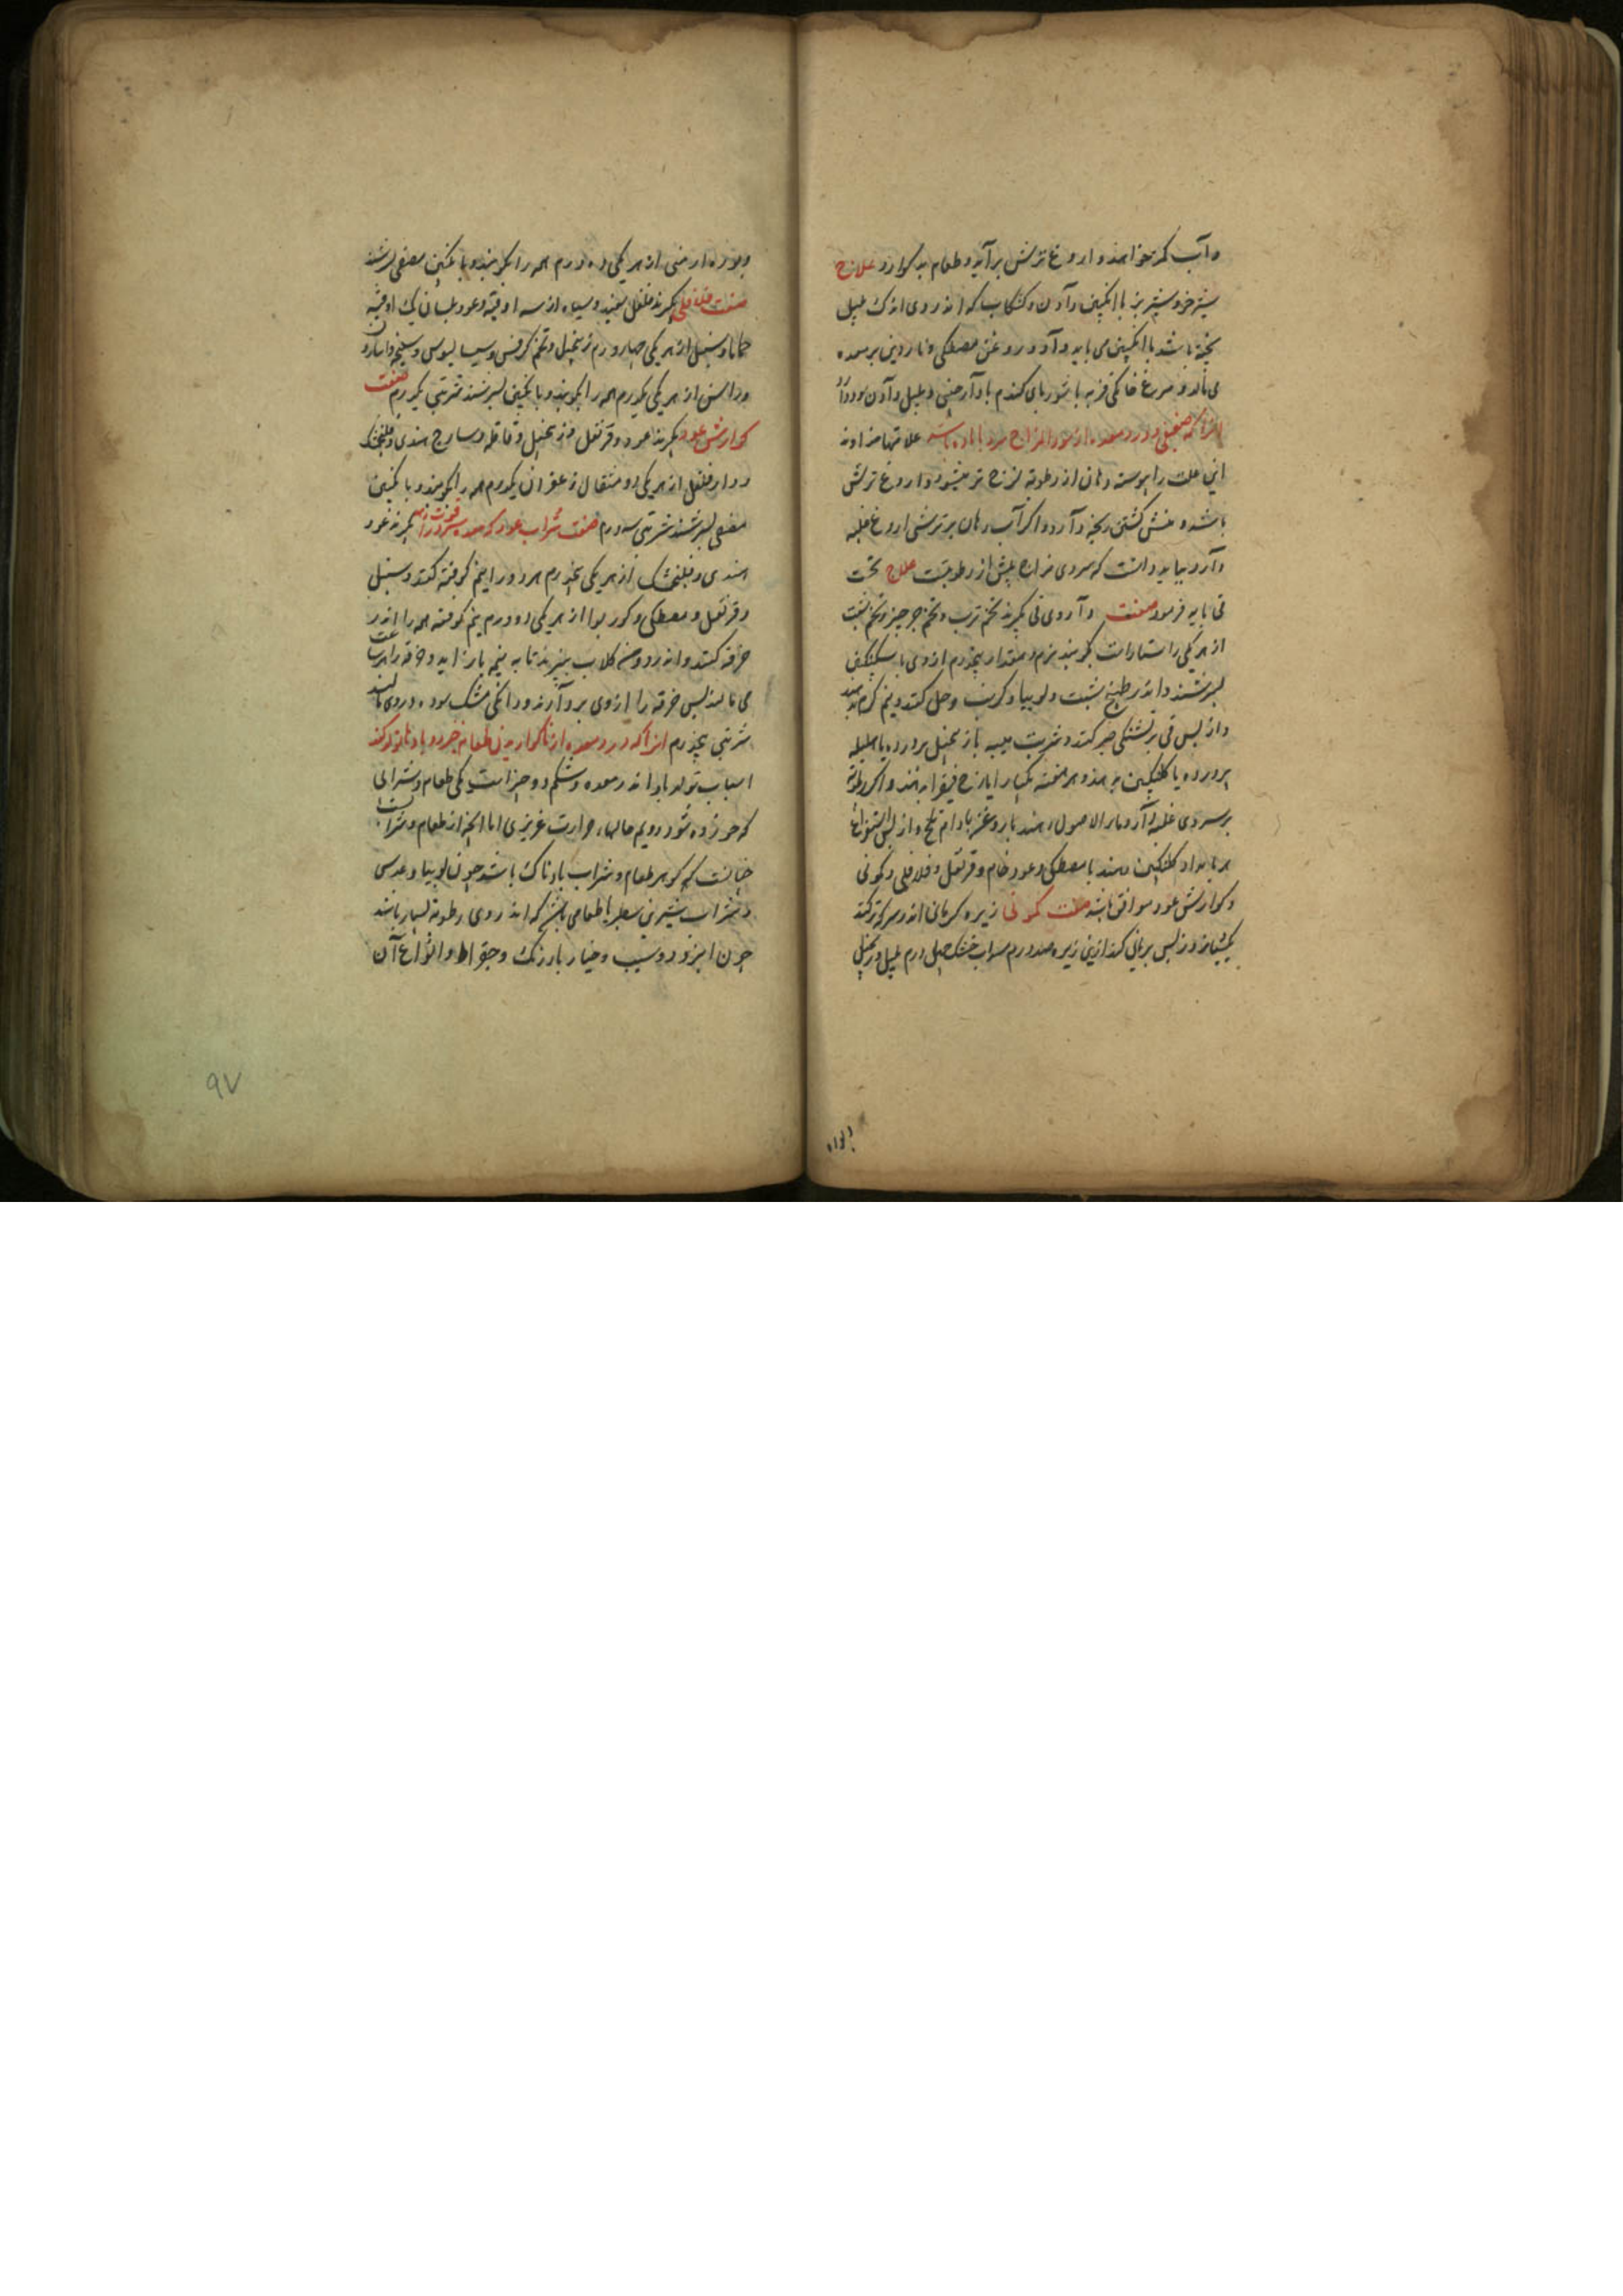 و آب کمتر خواهند و اروغ ترش برآید و طعام بد گوارد علاج
شیر خر و شیر بز با انگبین دادن و کشکاب که اندر وی اندک پلپل
پخته باشد با انگبین می باید داد و روغن مصطکی و ناردین بر معده
می مالند و مرغ خانگی فربه با شوربای گندم با دارچینی و پلپل دادن سود دارد
اندر آنکه ضعیفی و درد معده از سوءالمزاج سرد با ماده باشد علامتها خداوند
این علت را پیوسته دهان از رطوبة لزج تر میشود و اروغ ترش
باشد و منش گشتن رنجه دارد و اگر آب دهان بر ترشی اروغ غلبه
دارد بباید دانست که سردی مزاج بیش از رطوبتست علاج نخست
قی باید فرمود صفت داروی قی بگیرند تخم ترب و تخم جرجیر و تخم شبت
از هر یکی راستاراست بکوبند نرم و مقدار پنجدرم از وی با سکنگبین
بسرشند و اندر طبیخ شبت و لوبیا و کرنب حل کنند و نیم گرم بدهند
و از پس قی بر تشنگی صبر کنند و شربت میبه با زنجبیل پرورده یا هلیله
پرورده یا گلنگبین بدهند و هر هفته یکبار ایارج فیقرا بدهند و اگر رطوبة
بر سردی غلبه دارد ماءالاصول دهند با روغن بادام تلخ و از پس استفراغ
هر بامداد گلنگبین دهند با مصطکی و عود خام و قرنفل و فلافلی و کمونی
و گوارش عود موافق باشد صفت کمونی زیره کرمانی اندر سرکه تر کنند
یکشبانروز پس بریان کنند ازین زیره صد درم سداب خشک چهل درم پلپل و زنجبیل
و بوره ارمنی از هر یکی ده درم همه را بکوبند و با انگبین مصفی بسرشند
صفت فلافلی بگیرند فلفل سفید و سیاه از سه اوقیة و عود بلسان یک اوقیه
حماما و سنبل از هر یکی چهار درم زنجبیل و تخم کرفس و سیسالیوس و سلیخه و اسارون
و راسن از هر یکی یکدرم همه را بکوبند و با انگبین بسرشند شربتی یکدرم صفت
گوارش عود بگیرند عود و قرنفل و زنجبیل و قاقله و ساذج هندی و فلنجمشک
و دارفلفل از هر یکی دو مثقال زعفران یکدرم همه را بکوبند و با انگبین
مصفی بسرشند شربتی سه درم صفت شراب عود که معده سرد را قوت دهد بگیرند عود
هندی و فلنجمشک از هر یکی پنجدرم هر دو را نیم کوفته کنند و سنبل
و قرنفل و مصطکی و گوزبوا از هر یکی دو درم نیم کوفته همه را اندر
خرقه کنند و اندر دو من گلاب بپزند تا به نیمه بازآید و خرقه را هر ساعت
می مالند پس خرقه را از وی برآرند و دانگی مشک سوده در وی مالند
شربتی پنجدرم اندر آنکه درد معده از ناگواریدن طعام خیزد و بادها تولد کند
اسباب تولد باد اندر معده و شکم دو چیز است یکی طعام و شرابی
که خورده شود دویم حالهاء حرارت غریزی اما آنچه از طعام و شرابست
چنانست که گوهر طعام و شراب بادناک باشد چون لوبیا و عدس
و شراب شیرین سطبر یا طعامی باشد که اندر وی رطوبة بسیار باشد
چون امرود و سیب و خیار بادرنگ و بقراط و انواع آن
۹۷